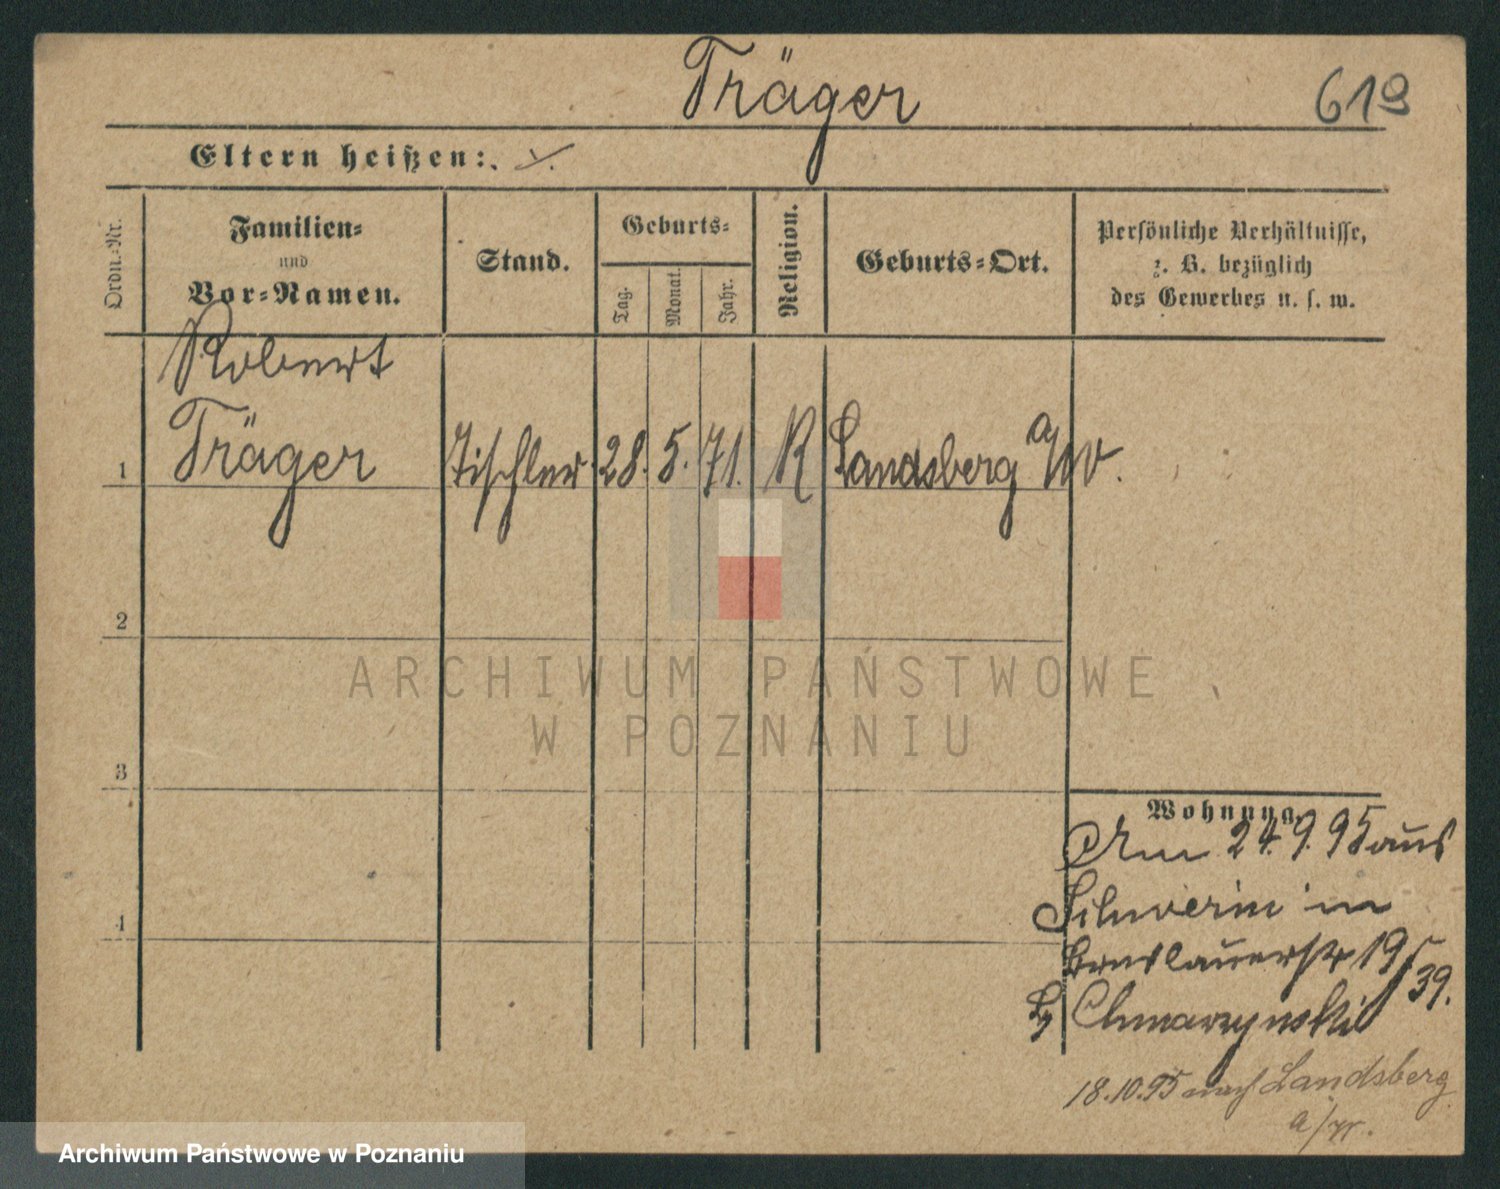 Träger
619
Eltern heißen:
Ordn.-Nr.
Familien-
und
Vor-Namen.
Stand.
Geburts-
Tag.
Monat.
Jahr.
Religion.
Geburts-Ort.
Persönliche Verhältnisse,
z. B. bezüglich
des Gewerbes u. s. w.
Robert
1 Träger Tischler 28. 5. 71. K Landsberg a/W.
2
3
4
ARCHIWUM PAŃSTWOWE
W POZNANIU
Wohnung.
Am 24.9.95 aus
Schwerin in
Breslauerstr 19/39.
b/ Chmarzynski
18.10.95 nach Landsberg
a/W.
Archiwum Państwowe w Poznaniu